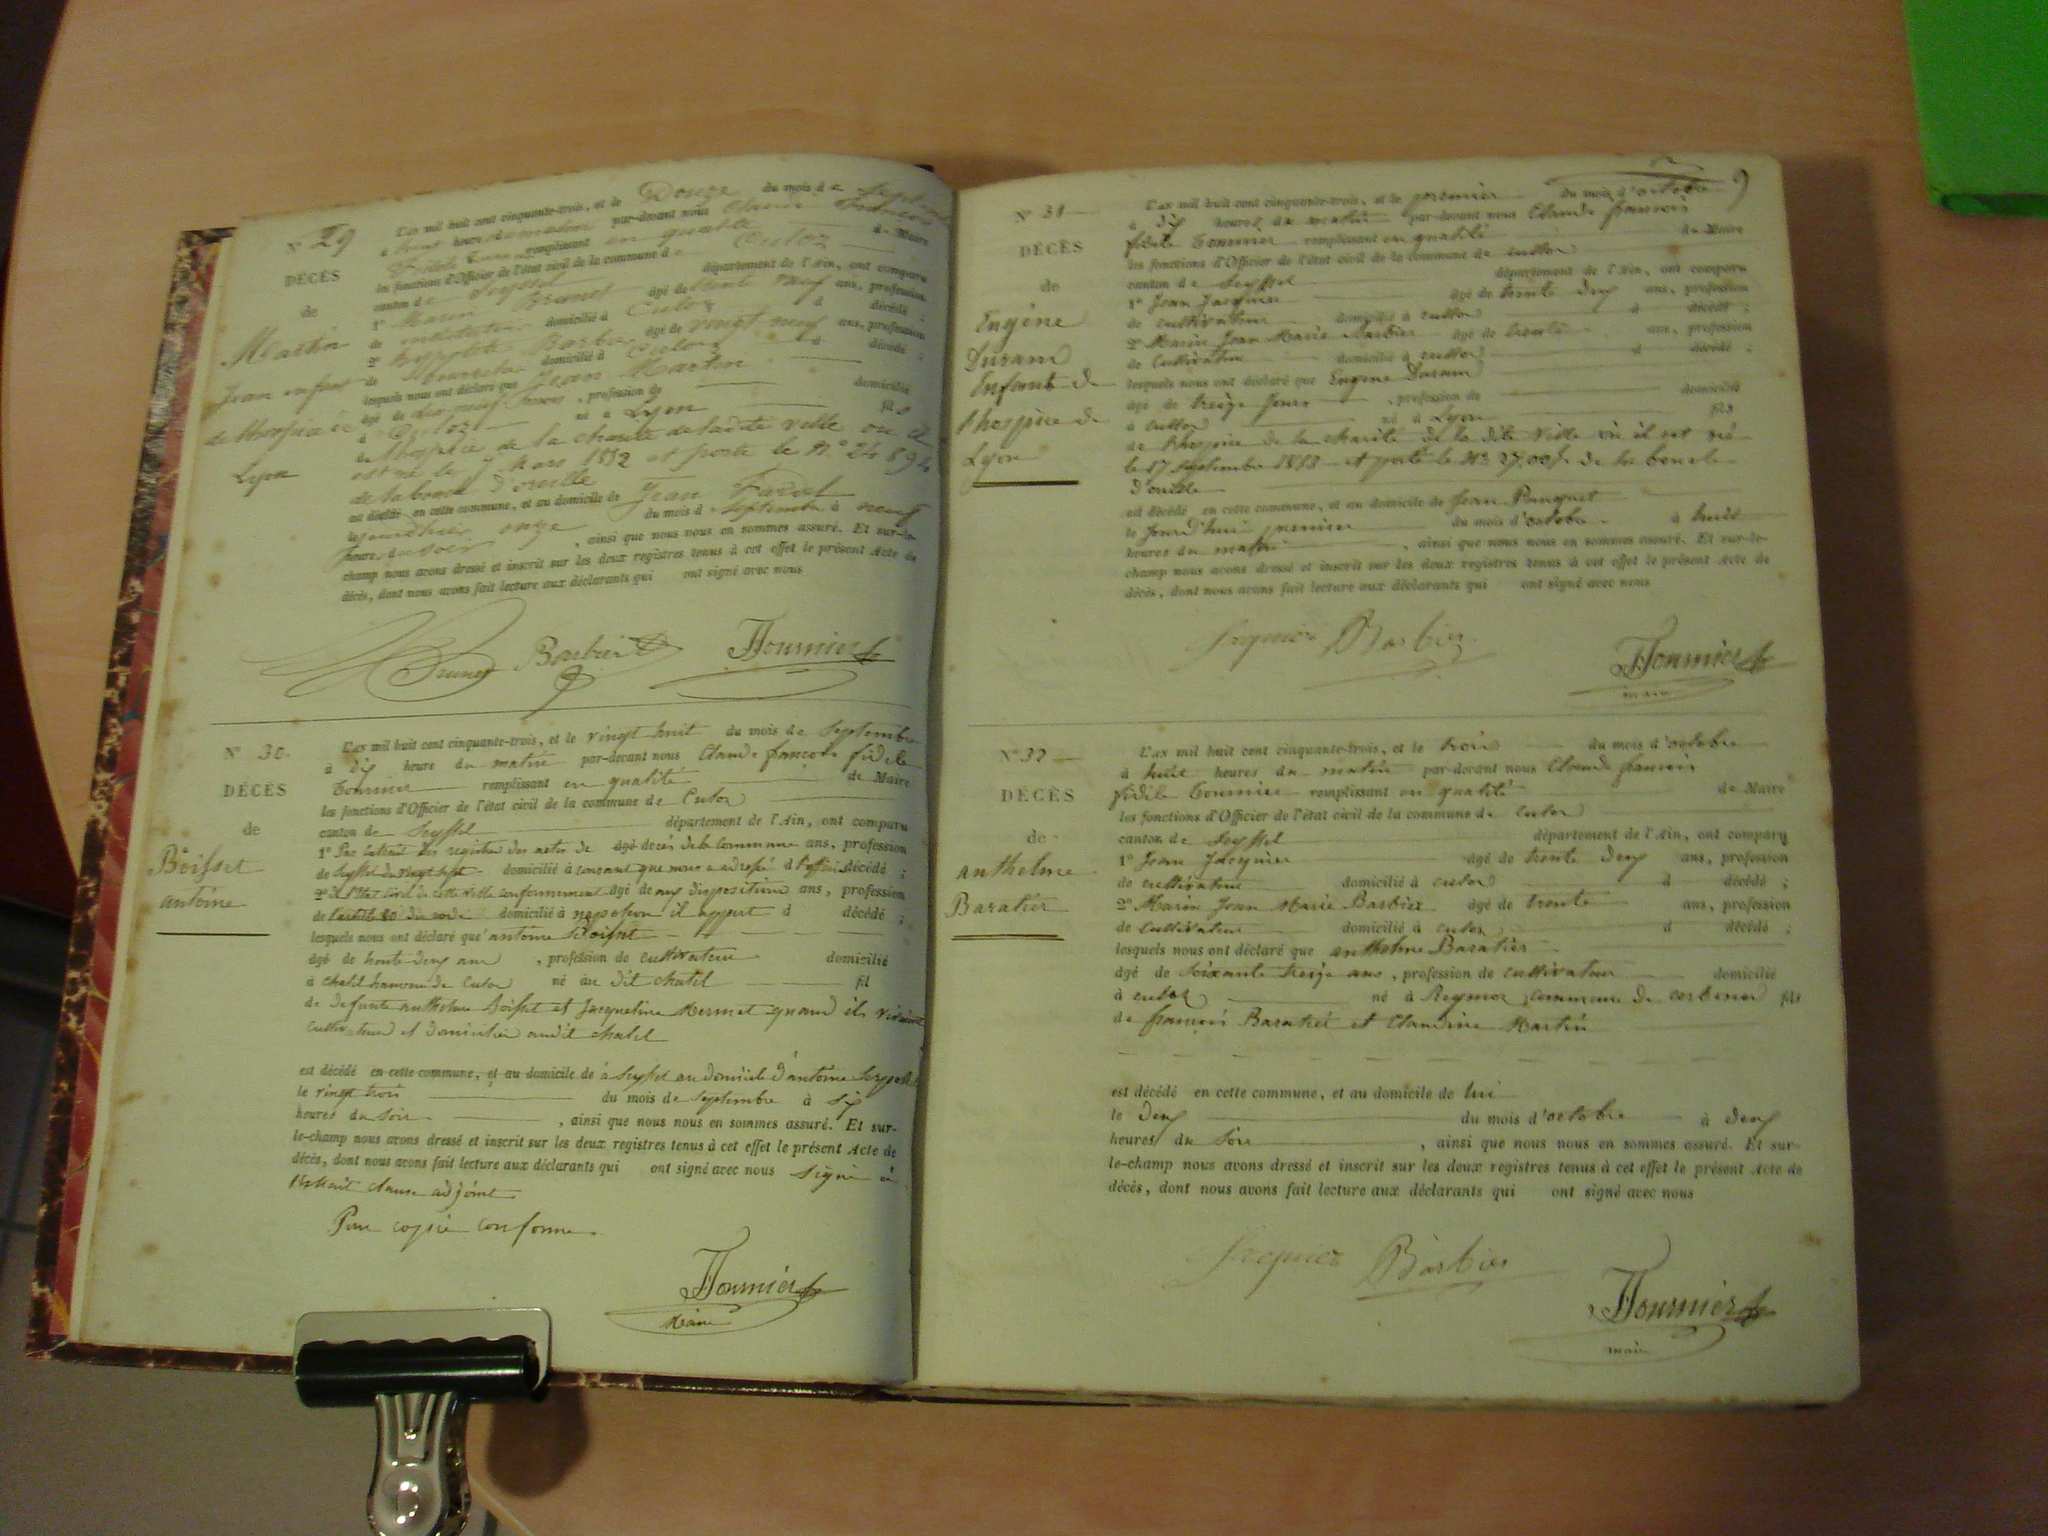 N° 29
DÉCÈS
de
Martin
Jean enfant
de l'hospice de
Lyon
L'an mil huit cent cinquante-trois, et le Douze du mois de Septembre
à huit heures du matin par-devant nous Claude François
Fidele remplissant en qualité de Maire
les fonctions d'Officier de l'état civil de la commune de Culoz
canton de Seyssel département de l'Ain, ont comparu
1° Marin Brunet âgé de trente neuf ans, profession
de instituteur domicilié à Culoz d décédé ;
2° hypolite Barbier âgé de vingt neuf ans, profession
de domicilié à Culoz d décédé ;
lesquels nous ont déclaré que Jean Martin
âgé de dix neuf mois, profession de domicilié
à Culoz né à Lyon fils
de l'hospice de la charité de ladite ville ou il
est né le 7 Mars 1852 et porte le N° 24894
de la boucle d'oreille
est décédé en cette commune, et au domicile de Jean
le jourdhui onze du mois de Septembre à neuf
heures du soir, ainsi que nous nous en sommes assuré. Et sur-le-
champ nous avons dressé et inscrit sur les deux registres tenus à cet effet le présent Acte de
décès, dont nous avons fait lecture aux déclarants qui ont signé avec nous
Brunet Barbier Fournier
N° 30
DÉCÈS
de
Boisset
antoine
L'an mil huit cent cinquante-trois, et le vingt huit du mois de Septembre
à dix heure du matin par-devant nous Claude françois fidele
Fournier remplissant en qualité de Maire
les fonctions d'Officier de l'état civil de la commune de Culoz
canton de Seyssel département de l'Ain, ont comparu
1° Par extrait des registres des actes de âgé decès de la commune ans, profession
de Seyssel du vingt sept domicilié à courant que nous a adressé d l'officier décédé ;
2° de l'état civil de cette ville conformement âgé de aux dispositions ans, profession
de l'article 80 du code domicilié à napoleon il appert d décédé ;
lesquels nous ont déclaré que antoine Boisset
âgé de trente deux ans, profession de cultivateur domicilié
à chatel hameau de Culoz né au dit chatel fil
de defunts anthelme Boisset et Jacqueline Mermet quand ils vivaient
cultivateurs et domiciliés audit chatel
est décédé en cette commune, et au domicile de à Seyssel au domicile d'antoine
le vingt trois du mois de Septembre à six
heures du soir, ainsi que nous nous en sommes assuré. Et sur-
le-champ nous avons dressé et inscrit sur les deux registres tenus à cet effet le présent Acte de
décès, dont nous avons fait lecture aux déclarants qui ont signé avec nous signé à
l'extrait adjoint
Pour copie conforme
Fournier
Maire
9
N° 31
DÉCÈS
de
Eugène
Durand
Enfant de
l'hospice de
Lyon
L'an mil huit cent cinquante-trois, et le premier du mois d'octobre
à dix heures du matin par-devant nous Claude françois
fidele Fournier remplissant en qualité de Maire
les fonctions d'Officier de l'état civil de la commune de culoz
canton de Seyssel département de l'Ain, ont comparu
1° Jean Jacquier âgé de trente deux ans, profession
de cultivateur domicilié à culoz d décédé ;
2° Marin Jean Marie Barbier âgé de trente ans, profession
de Cultivateur domicilié à culoz d décédé ;
lesquels nous ont déclaré que Eugène Durand
âgé de treize Jours, profession de domicilié
à culoz né à Lyon fils
de l'hospice de la charité de la dite ville où il est né
le 17 Septembre 1853 et porte le N° de la boucle
d'oreille
est décédé en cette commune, et au domicile de Jean
le Jourd'hui premier du mois d'octobre à huit
heures du matin, ainsi que nous nous en sommes assuré. Et sur-le-
champ nous avons dressé et inscrit sur les deux registres tenus à cet effet le présent Acte de
décès, dont nous avons fait lecture aux déclarants qui ont signé avec nous
Jaquier Barbier
Fournier
maire
N° 32
DÉCÈS
de
anthelme
Baratier
L'an mil huit cent cinquante-trois, et le trois du mois d'octobre
à huit heures du matin par-devant nous Claude françois
fidele Fournier remplissant en qualité de Maire
les fonctions d'Officier de l'état civil de la commune de culoz
canton de Seyssel département de l'Ain, ont comparu
1° Jean Jacquier âgé de trente deux ans, profession
de cultivateur domicilié à culoz d décédé ;
2° Marin Jean Marie Barbier âgé de trente ans, profession
de Cultivateur domicilié à culoz d décédé ;
lesquels nous ont déclaré que anthelme Baratier
âgé de soixante treize ans, profession de cultivateur domicilié
à culoz né à commune de fils
de françois Baratier et Claudine Martin
est décédé en cette commune, et au domicile de lui
le deux du mois d'octobre à deux
heures du Soir, ainsi que nous nous en sommes assuré. Et sur-
le-champ nous avons dressé et inscrit sur les deux registres tenus à cet effet le présent Acte de
décès, dont nous avons fait lecture aux déclarants qui ont signé avec nous
Jaquier Barbier
Fournier
maire